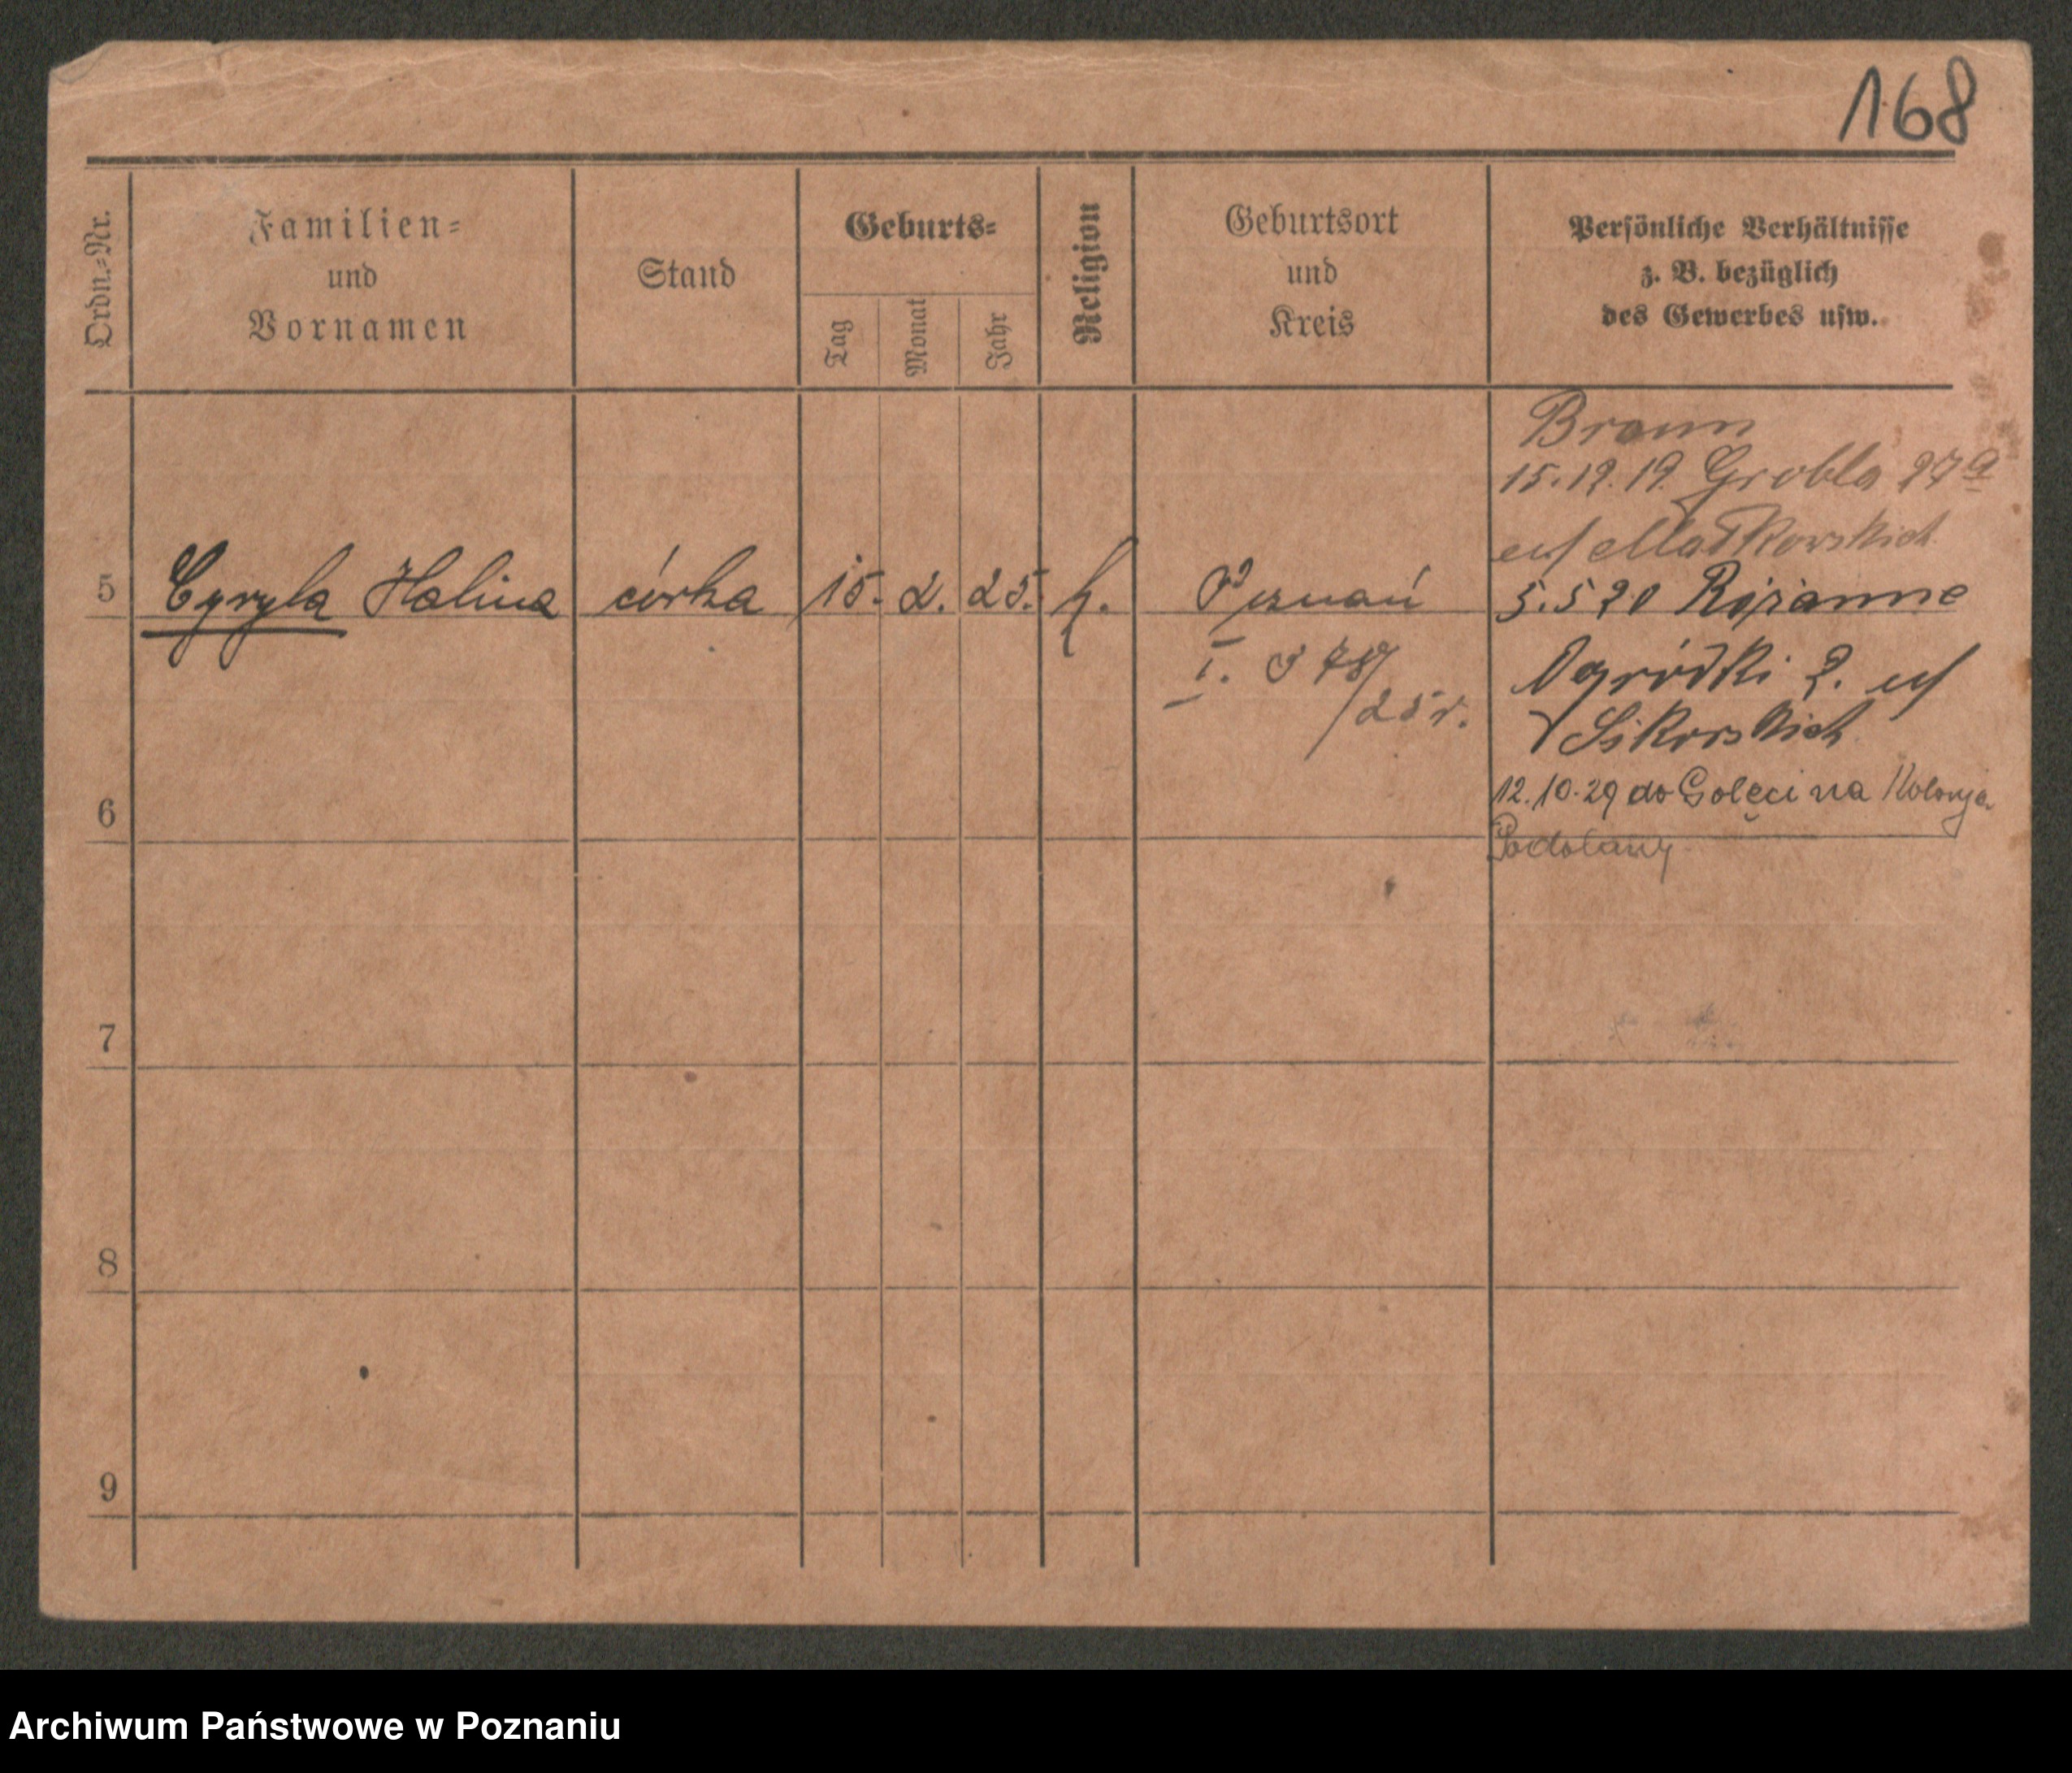 168
Ordn.-Nr.
Familien-
und
Vornamen
Stand
Geburts-
Tag
Monat
Jahr
Religion
Geburtsort
und
Kreis
Persönliche Verhältnisse
z. B. bezüglich
des Gewerbes usw.
Braun
15.12.19. Grobla 27a
Matkowskich
5 Cyryla Halina córka 15. 2. 25. k. Poznań
5.5 20 Różanne
I. 78/25 r.
Ogródki 2.
Sikorskich
6
12.10.29 do Golęcina Kolonja
Podolany
7
8
9
Archiwum Państwowe w Poznaniu